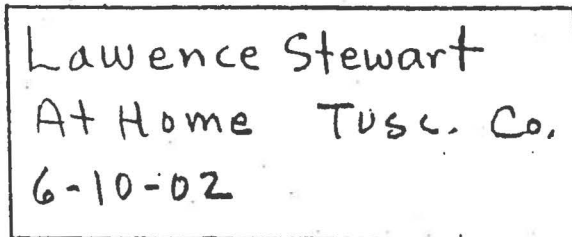 Lawence Stewart
At Home Tusc. Co.
6-10-02